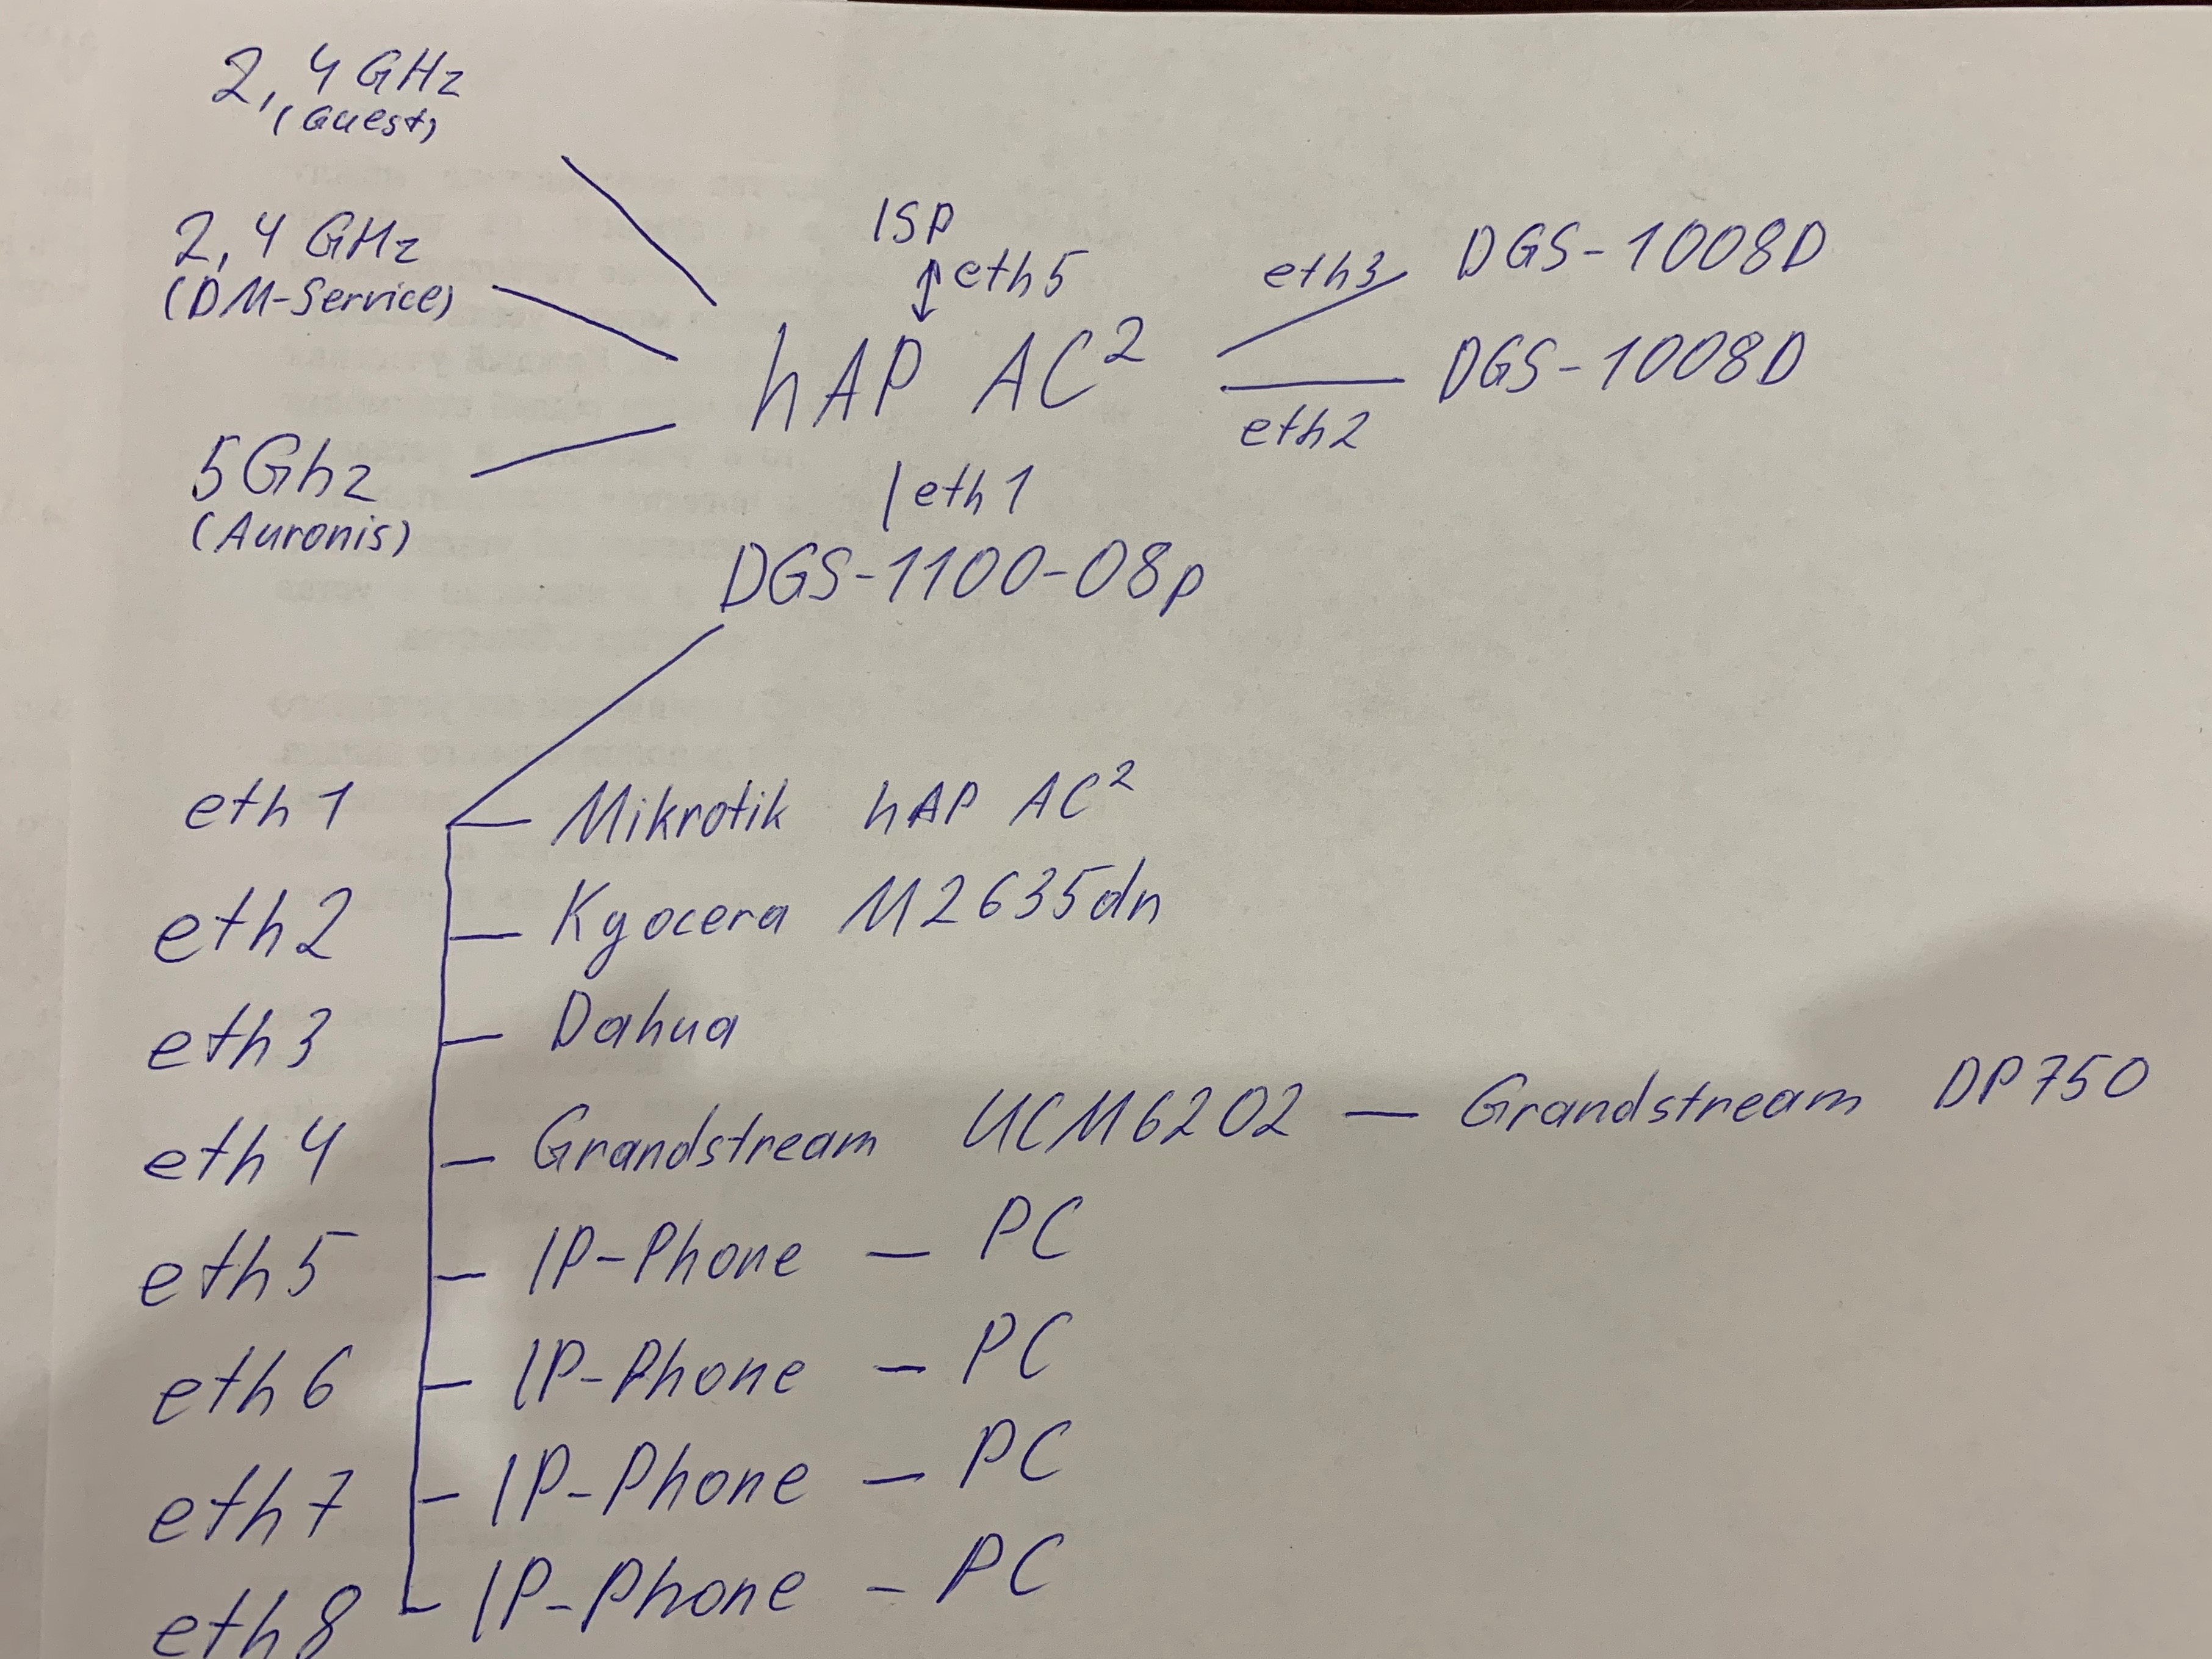 2,4 GHz
(Guest)
2,4 GHz
(DM-Service)
5Ghz
(Auronis)
ISP
eth5
hAP AC²
eth3
DGS-1008D
DGS-1008D
eth2
eth1
DGS-1100-08p
eth1 Mikrotik hAP AC²
eth2 Kyocera M2635dn
eth3 Dahua
eth4 Grandstream UCM6202 — Grandstream DP750
eth5 IP-Phone — PC
eth6 IP-Phone — PC
eth7 IP-Phone — PC
eth8 IP-Phone — PC